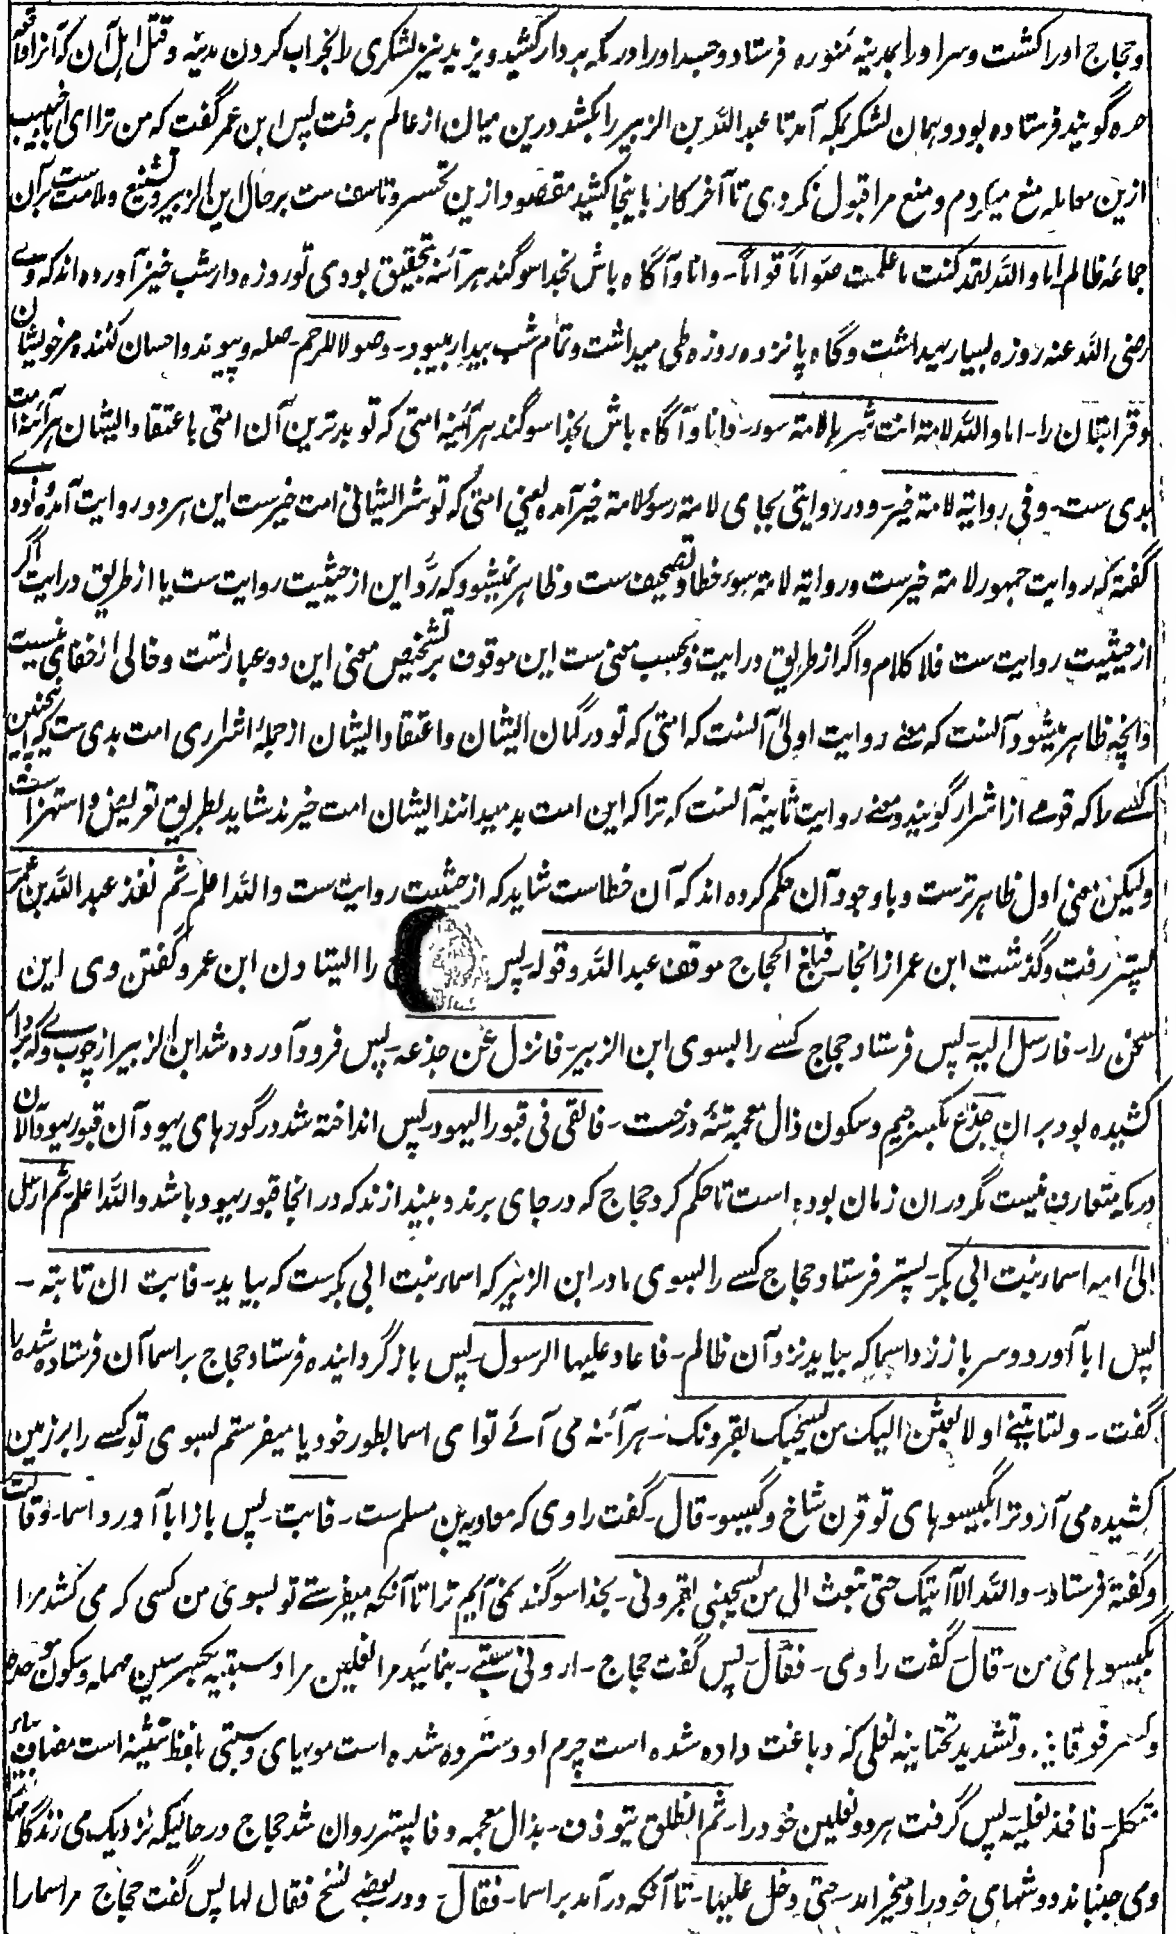 وحجاج اورا کشت وسر اورا بمدینه منوره فرستاد وجسد اورا در مکه بردار کشید ویزید نیز لشکری را بخراب کردن مدینه وقتل اهل آن که آنرا واقعه
حره گویند فرستاده بود وهمان لشکر بمکه آمد تا عبد الله بن الزبیر را بکشد درین میان از عالم برفت پس ابن عمر گفت که من ترا ای ابا خبیب
ازین معامله منع میکردم ومنع مرا قبول نکردی تا آخر کار باینجا کشید مقصود ازین تحسر وتاسف ست بر حال ابن الزبیر وتشنیع وملامت ست بر آن
جماعه ظالم اما والله لقد کنت ما علمت صواما قواما۔ ودانا وآگاه باش بخدا سوگند هر آئنه بتحقیق بودی تو روزه دار شب خیز آورده اند که وے
رضی الله عنه روزه بسیار میداشت وگاه پانزده روزه طی میداشت وتمام شب بیدار میبود۔ وصولا للرحم۔ صله وپیوند واحسان کننده مر خویشان
وقرابتان را۔ اما والله لامة انت شرها لامة سوء۔ دانا وآگاه باش بخدا سوگند هر آئینه امتی که تو بدترین آن امتی باعتقاد ایشان هر آئنه امت
بدی ست۔ وفی روایة لامة خیر۔ ودر روایتی بجای لامة سوء لامة خیر آمده یعنی امتی که تو شر ایشانی امت خیرست این هر دو روایت آمده ونووے
گفته که روایت جمهور لامة خیرست وروایة لامة سوء خطا وتصحیف ست وظاهر نمیشود که رد این از حیثیت روایت ست یا از طریق درایت اگر
از حیثیت روایت ست فلا کلام واگر از طریق درایت وبحسب معنی ست این موقوف بر تشخیص معنی این دو عبارتست وخالی از خفای نیست
وانچه ظاهر میشود آنست که معنے روایت اولی آنست که امتی که تو در گمان ایشان واعتقاد ایشان از جمله اشراری امت بدی ست که اینچنین
کسے را که قومے از اشرار گویند ومعنے روایت ثانیه آنست که ترا که این امت بد میدانند ایشان امت خیرند شاید بطریق تعریض واستهزاست
ولیکن معنی اول ظاهرترست وباوجود آن حکم کرده اند که آن خطاست شاید که از حیثیت روایت ست والله اعلم۔ ثم نفذ عبد الله بن عمر
پستر رفت وگذشت ابن عمر از انجا۔ فبلغ الحجاج موقف عبد الله وقوله۔ پس را ایستادن ابن عمر وگفتن وی این
سخن را۔ فارسل الیه۔ پس فرستاد حجاج کسے را بسوی ابن الزبیر۔ فانزل عن جذعه۔ پس فرود آورده شد ابن الزبیر از چوب وے که بردار
کشیده بود بر ان جذع بکسر جیم وسکون ذال معجمه تنه درخت۔ فالقی فی قبور الیهود۔ پس انداخته شد در گورهای یهود آن قبور یهود الآن
در مکه متعارف نیست مگر دران زمان بوده است تا حکم کرد حجاج که در جای برند وبیندازند که در انجا قبور یهود باشد والله اعلم۔ ثم ارسل
الی امه اسماء بنت ابی بکر۔ پستر فرستاد حجاج کسے را بسوی مادر ابن الزبیر که اسماء بنت ابی بکرست که بیاید۔ فابت ان تاتیه۔
پس ابا آورد وسر باز زد اسما که بیاید نزد آن ظالم۔ فاعاد علیها الرسول۔ پس باز گردانیده فرستاد حجاج بر اسما آن فرستاده شده را
گفت۔ ولتاتینی او لابعثن الیک من یسحبک بقرونک۔ هر آئنه می آئے تو ای اسما بطور خود یا میفرستم بسوی تو کسے را بر زمین
کشیده می آرد ترا بگیسوهای تو قرن شاخ وگیسو۔ قال۔ گفت راوی که معاویه بن مسلم ست۔ فابت۔ پس باز ابا آورد اسما۔ وقالت
وگفته فرستاد۔ والله لا آتیک حتی تبعث الی من یسحبنی بقرونی۔ بخدا سوگند نمی آیم ترا تا آنکه میفرستے تو بسوی من کسی که می کشد مرا
بگیسوهای من۔ قال۔ گفت راوی۔ فقال۔ پس گفت حجاج۔ ارونی سبتی۔ بنمائید مرا نعلین مرا وسبتیه بکسر سین مهمله وسکون موحده
وکسر فوقانیه وتشدید تحتانیه نعلی که دباغت داده شده است چرم او وسترده شده است مویهای وی وسبتی بلفظ تثنیه است مضاف بیای
متکلم۔ فاخذ نعلیه۔ پس گرفت هر دو نعلین خود را۔ ثم انطلق یتوذف۔ بذال معجمه وفا پستر روان شد حجاج در حالیکه نزدیک می زند گامها
ومی جنباند دوشهای خود را ومیخرامد۔ حتی دخل علیها۔ تا آنکه در آمد بر اسما۔ فقال۔ ودر بعضے نسخ فقال لها پس گفت حجاج مر اسما را